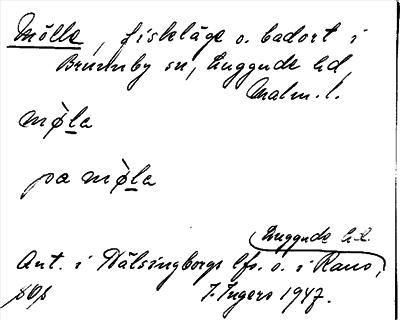 Mölle, fiskläge o. badort i
Brunnby sn, Luggude hd,
Malm. l.
mø̀la
pa mø̀la
Luggude hd.
Ant. i Hälsingborgs lfs. o. i Raus,
I. Ingers 1947.